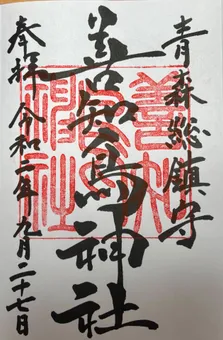 青森総鎮守
善知鳥神社
奉拝 令和二年九月二十七日